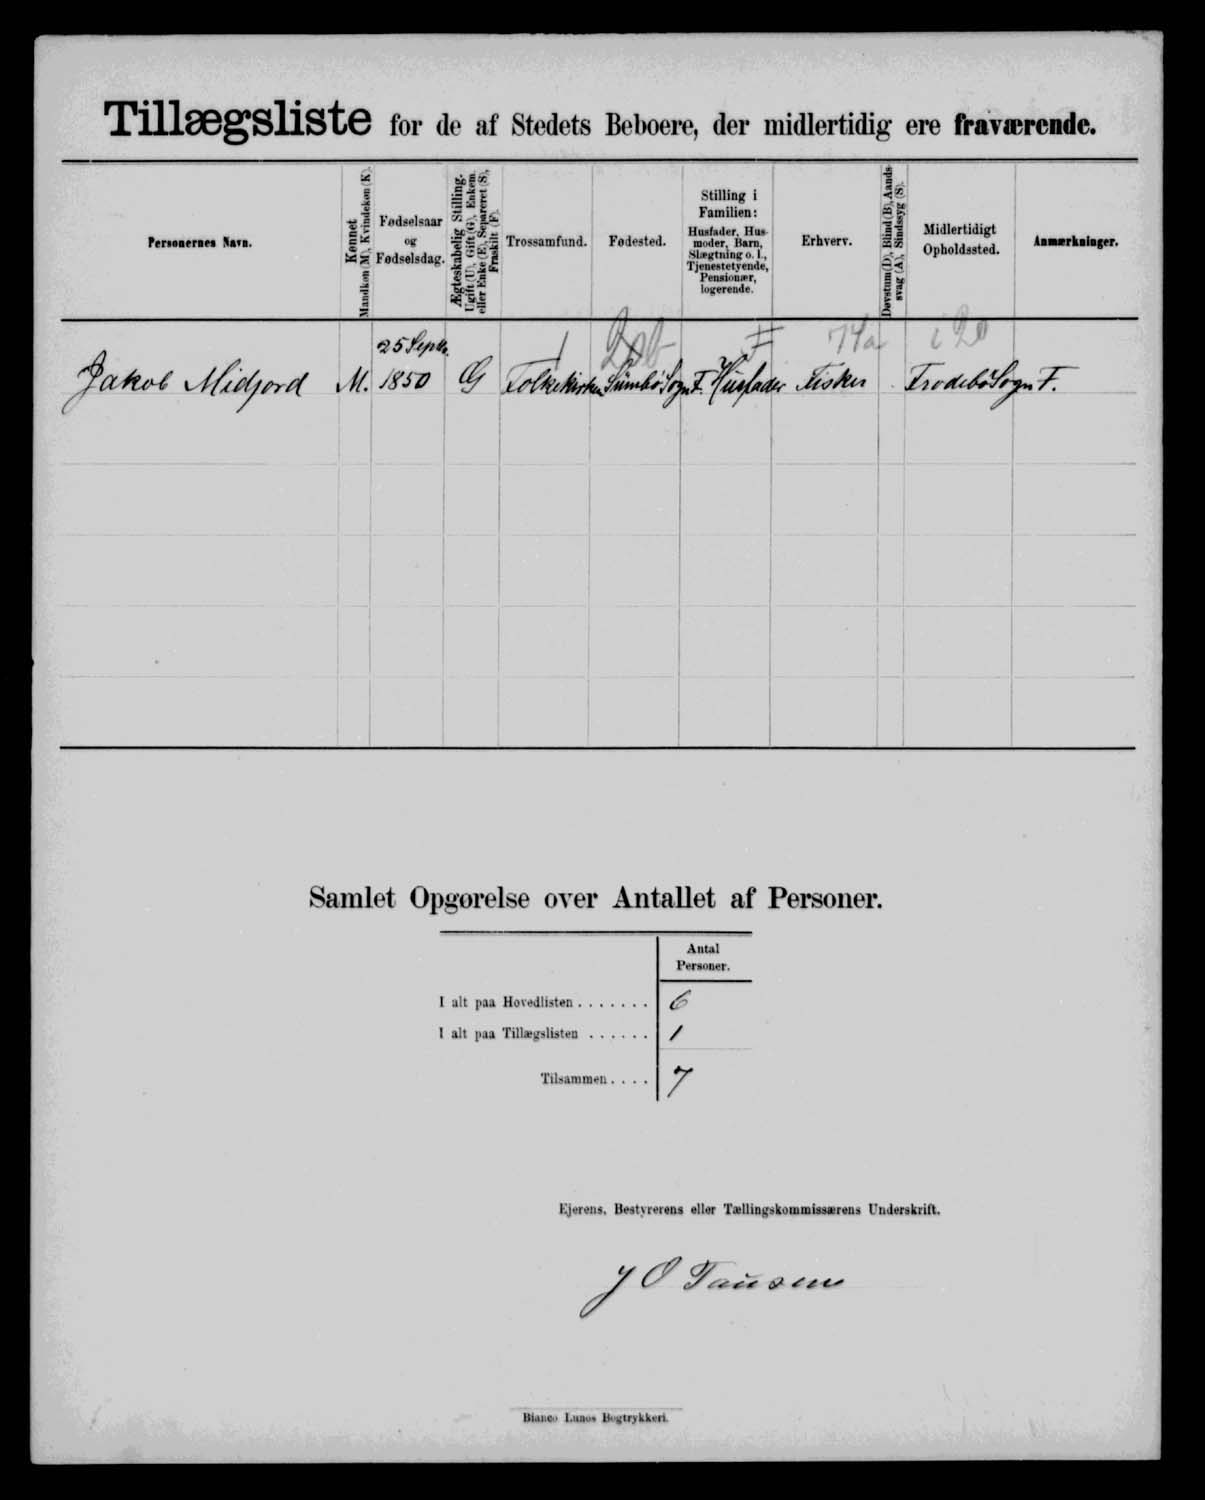 Tillægsliste for de af Stedets Beboere, der midlertidig ere fraværende.
Personernes Navn.
Kønnet
Mandkøn (M), Kvindekøn (K).
Fødselsaar
og
Fødselsdag.
Ægteskabelig Stilling.
Ugift (U), Gift (G), Enkem.
eller Enke (E), Separeret (S),
Fraskilt (F).
Trossamfund.
Fødested.
Stilling i
Familien:
Husfader, Hus-
moder, Barn,
Slægtning o. l.,
Tjenestetyende,
Pensionær,
logerende.
Erhverv.
Døvstum (D), Blind (B), Aands-
svag (A), Sindssyg (S).
Midlertidigt
Opholdssted.
Anmærkninger.
1 F 74a i 20
25 Septb.
Jakob Midjord M. 1850 G Folkekirken Sümbö Sogn F. Husfader Fisker Frodebö Sogn F.
Samlet Opgørelse over Antallet af Personer.
Antal
Personer.
I alt paa Hovedlisten . . . . . . . 6
I alt paa Tillægslisten . . . . . . 1
Tilsammen . . . . 7
Ejerens, Bestyrerens eller Tællingskommissærens Underskrift.
J O Tausen
Bianco Lunos Bogtrykkeri.